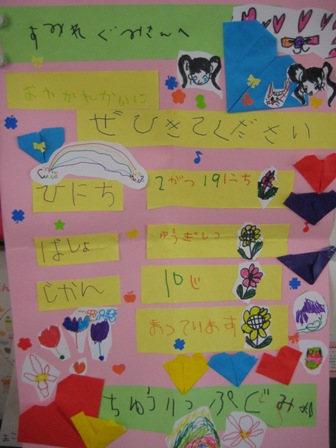 すみれぐみさんへ
おわかれかいに
ぜひきてください
ひにち 2がつ19にち
ばしょ ゆうぎしつ
じかん 10じ
まっています
ちゅうりっぷぐみ